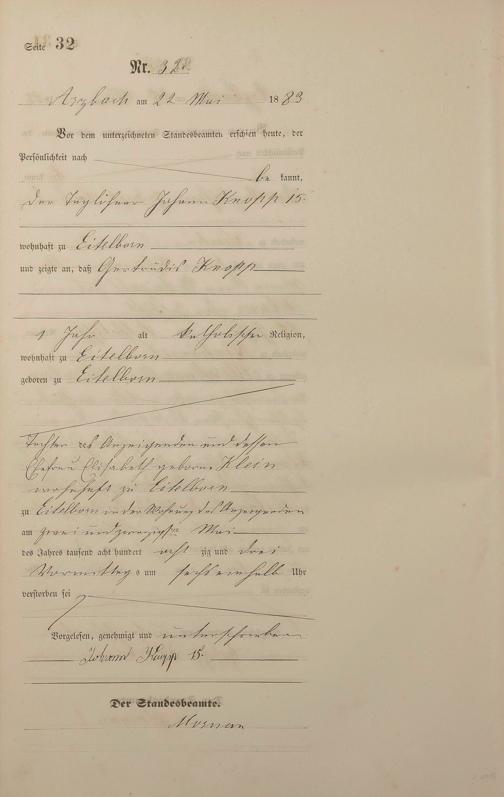 Seite 32
Nr. 32
Arzbach am 22 Mai 1883
Vor dem unterzeichneten Standesbeamten erschien heute, der
Persönlichkeit nach
be kannt,
der Taglöhner Johann Knopp 15.
wohnhaft zu Eitelborn
und zeigte an, daß Gertrudis Knopp
1 Jahr alt katholischer Religion,
wohnhaft zu Eitelborn
geboren zu Eitelborn
Tochter des Anzeigenden und dessen
Ehefrau Elisabeth geborne Klein
wohnhaft zu Eitelborn
zu Eitelborn in der Wohnung des Anzeigenden
am zwei und zwanzigsten Mai
des Jahres tausend acht hundert acht zig und drei
Vormittags um sechs einhalb Uhr
verstorben sei
Vorgelesen, genehmigt und unterschrieben
Johann Knopp 15.
Der Standesbeamte.